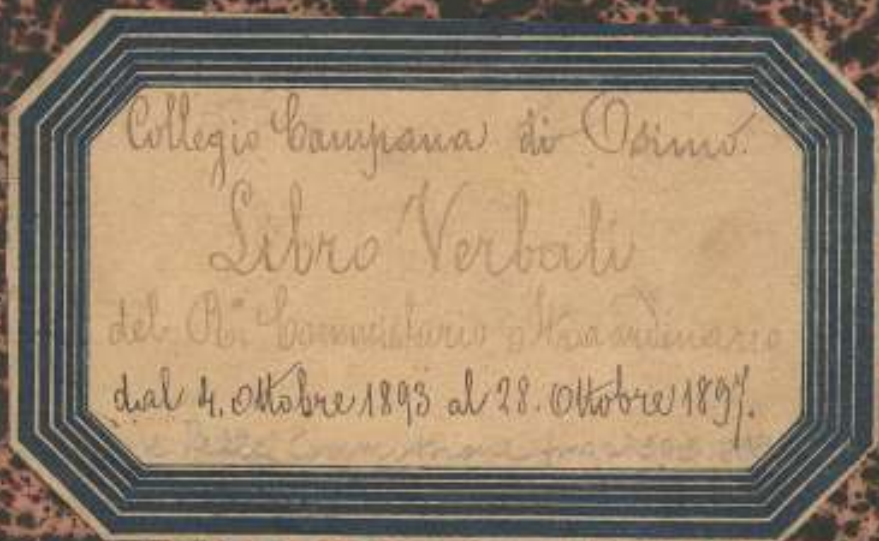 Collegio Campana di Osimo.
Libro Verbali
del R.º Commissario Straordinario
dal 4. Ottobre 1893 al 28. Ottobre 1897.
e della